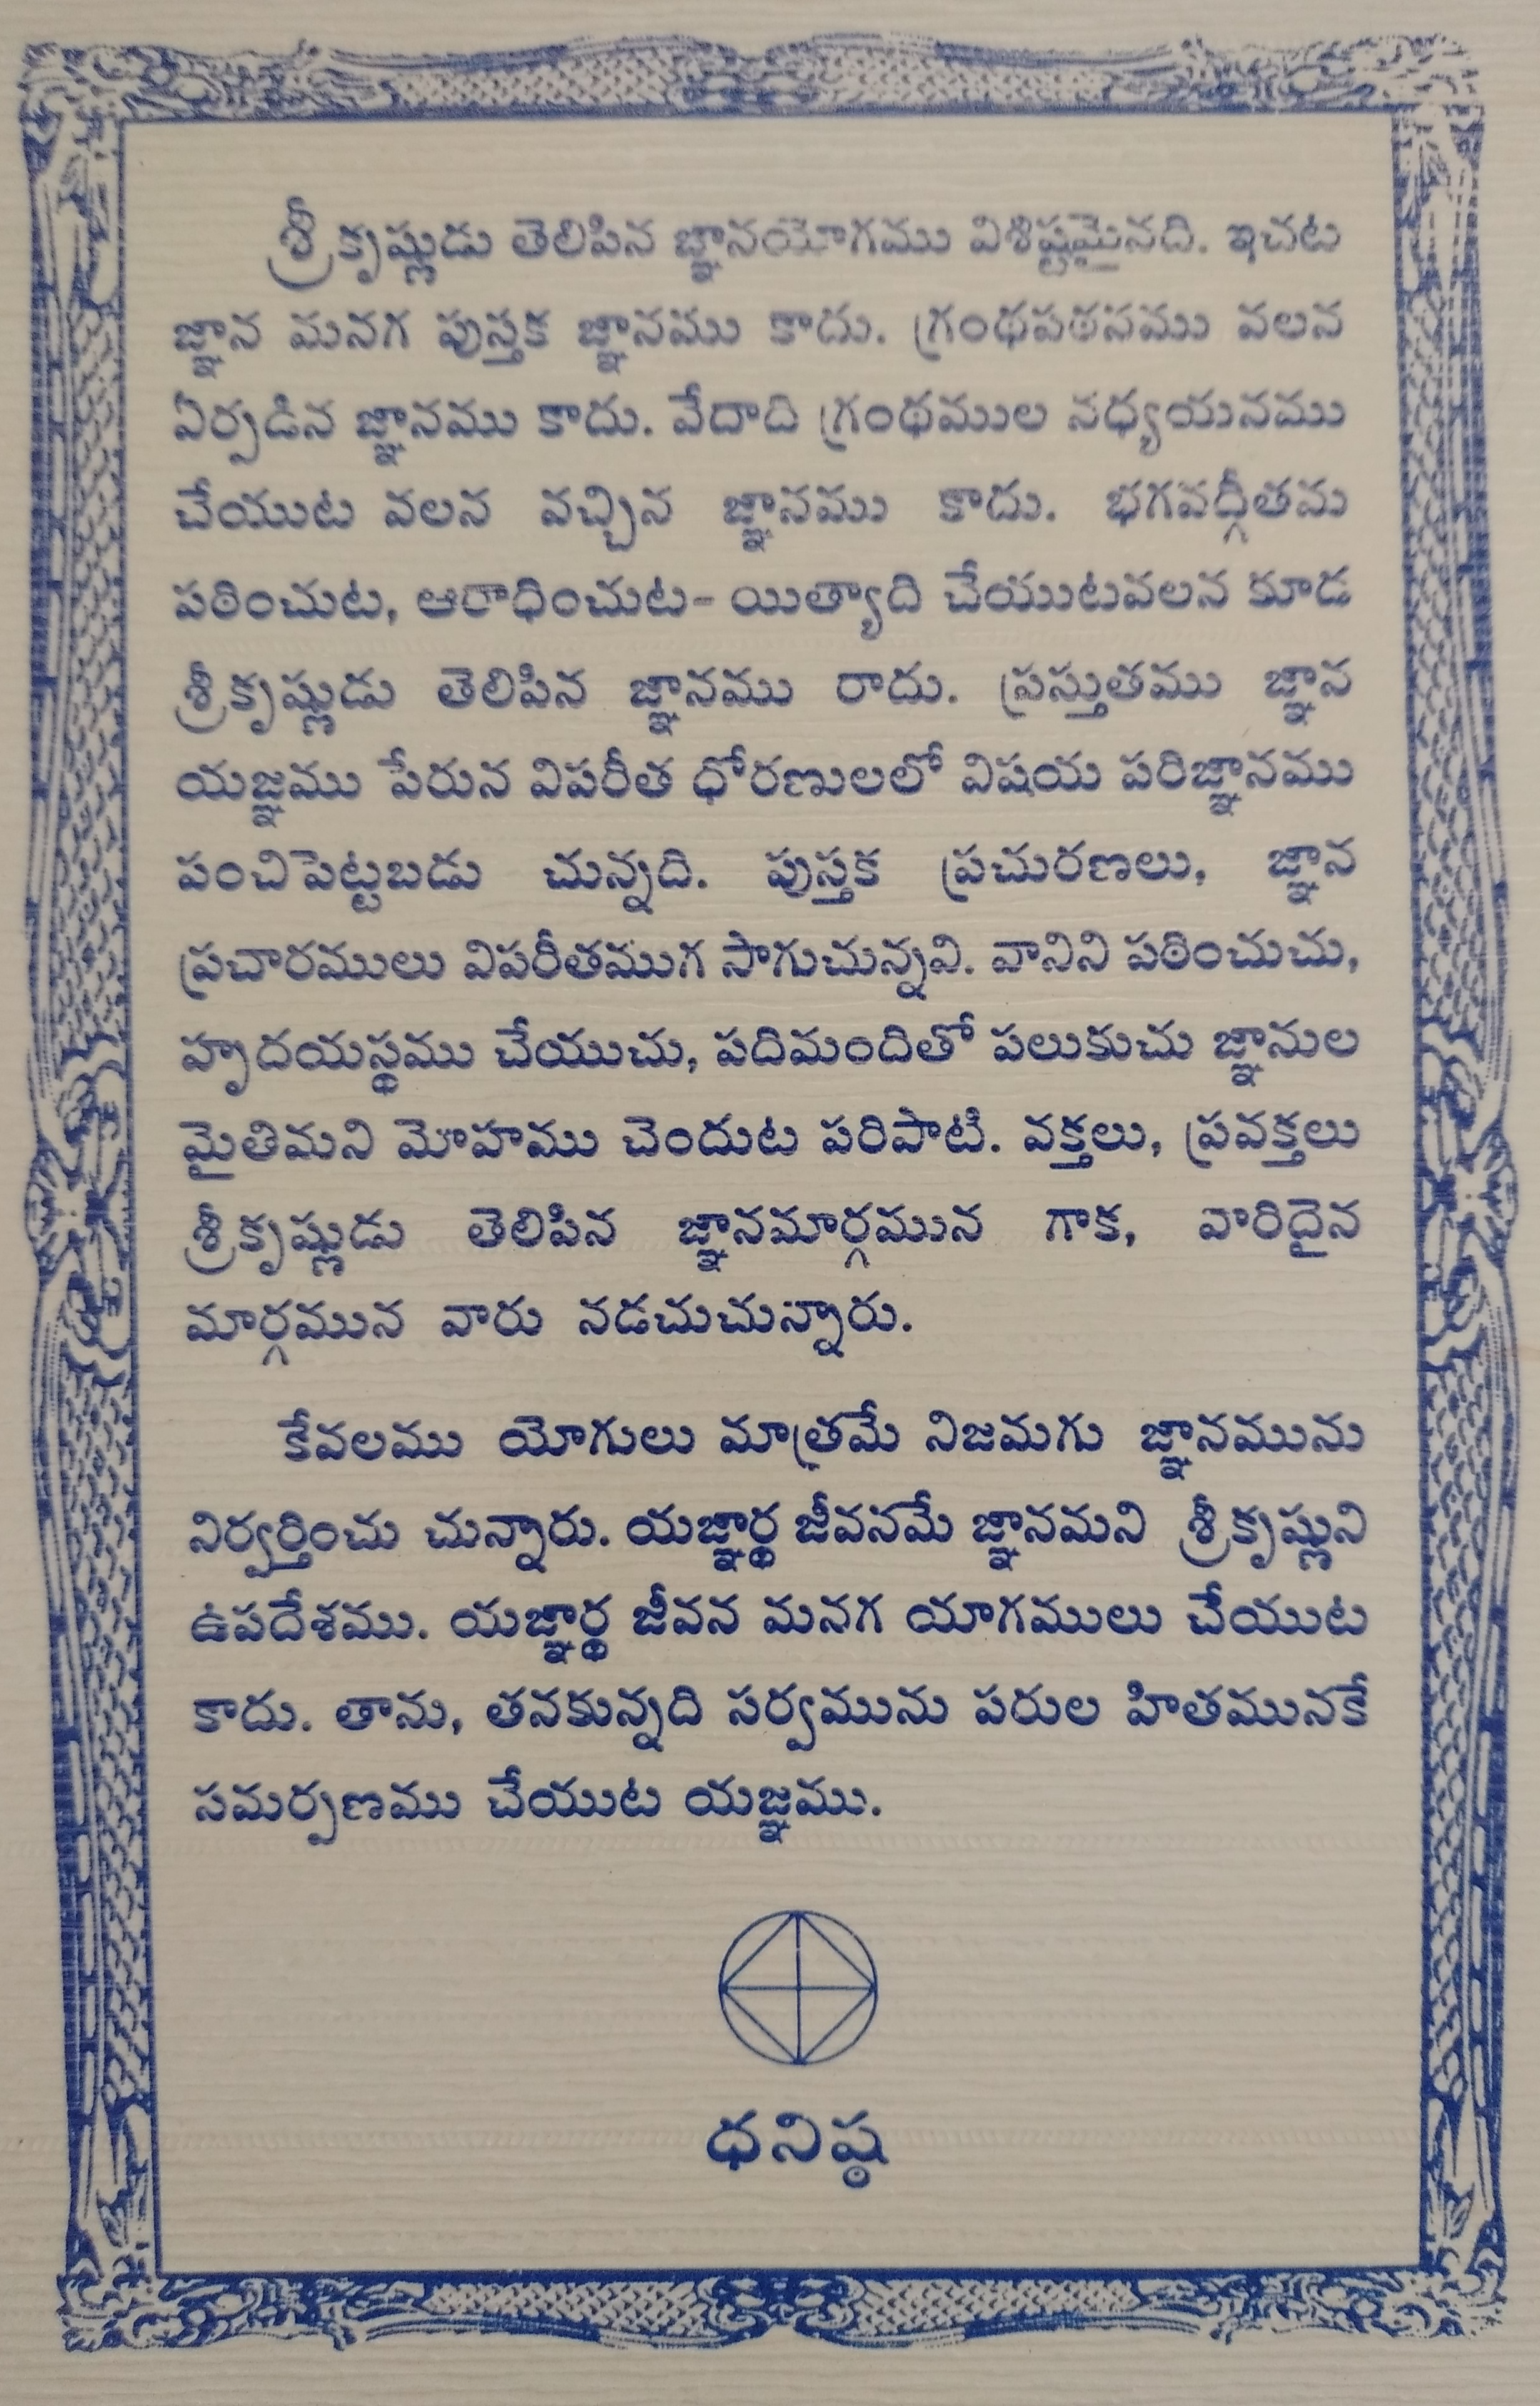 శ్రీకృష్ణుడు తెలిపిన జ్ఞానయోగము విశిష్టమైనది. ఇచట
జ్ఞాన మనగ పుస్తక జ్ఞానము కాదు. గ్రంథపఠనము వలన
ఏర్పడిన జ్ఞానము కాదు. వేదాది గ్రంథముల నధ్యయనము
చేయుట వలన వచ్చిన జ్ఞానము కాదు. భగవద్గీతమ
పఠించుట, ఆరాధించుట- యిత్యాది చేయుటవలన కూడ
శ్రీకృష్ణుడు తెలిపిన జ్ఞానము రాదు. ప్రస్తుతము జ్ఞాన
యజ్ఞము పేరున విపరీత ధోరణులలో విషయ పరిజ్ఞానము
పంచిపెట్టబడు చున్నది. పుస్తక ప్రచురణలు, జ్ఞాన
ప్రచారములు విపరీతముగ సాగుచున్నవి. వానిని పఠించుచు,
హృదయస్థము చేయుచు, పదిమందితో పలుకుచు జ్ఞానుల
మైతిమని మోహము చెందుట పరిపాటి. వక్తలు, ప్రవక్తలు
శ్రీకృష్ణుడు తెలిపిన జ్ఞానమార్గమున గాక, వారిదైన
మార్గమున వారు నడచుచున్నారు.
కేవలము యోగులు మాత్రమే నిజమగు జ్ఞానమును
నిర్వర్తించు చున్నారు. యజ్ఞార్థ జీవనమే జ్ఞానమని శ్రీకృష్ణుని
ఉపదేశము. యజ్ఞార్థ జీవన మనగ యాగములు చేయుట
కాదు. తాను, తనకున్నది సర్వమును పరుల హితమునకే
సమర్పణము చేయుట యజ్ఞము.
ధనిష్ఠ